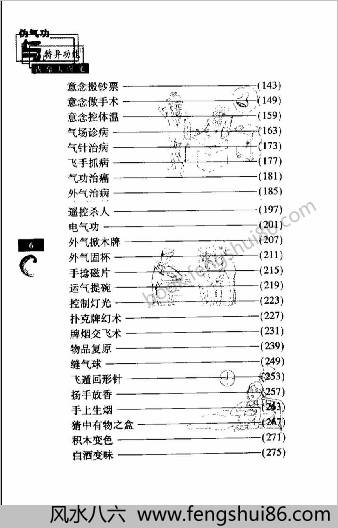 伪气功
与特异功能
意念搬钞票 (143)
意念做手术 (149)
意念控体温 (159)
气场诊病 (163)
气针治病 (173)
飞手抓病 (177)
气功治癌 (181)
外气治病 (185)
遥控杀人 (197)
电气功 (201)
外气掀木牌 (207)
外气固杯 (211)
手捻磁片 (215)
运气提碗 (219)
控制灯光 (223)
扑克牌幻术 (227)
牌烟交飞术 (231)
物品复原 (239)
缝气球 (249)
飞遁回形针 (253)
扬手放香 (257)
手上生烟 (263)
猜中有物之盒 (267)
积木变色 (271)
白酒变味 (275)
6
book.fengshui86.com
风水八六 www.fengshui86.com